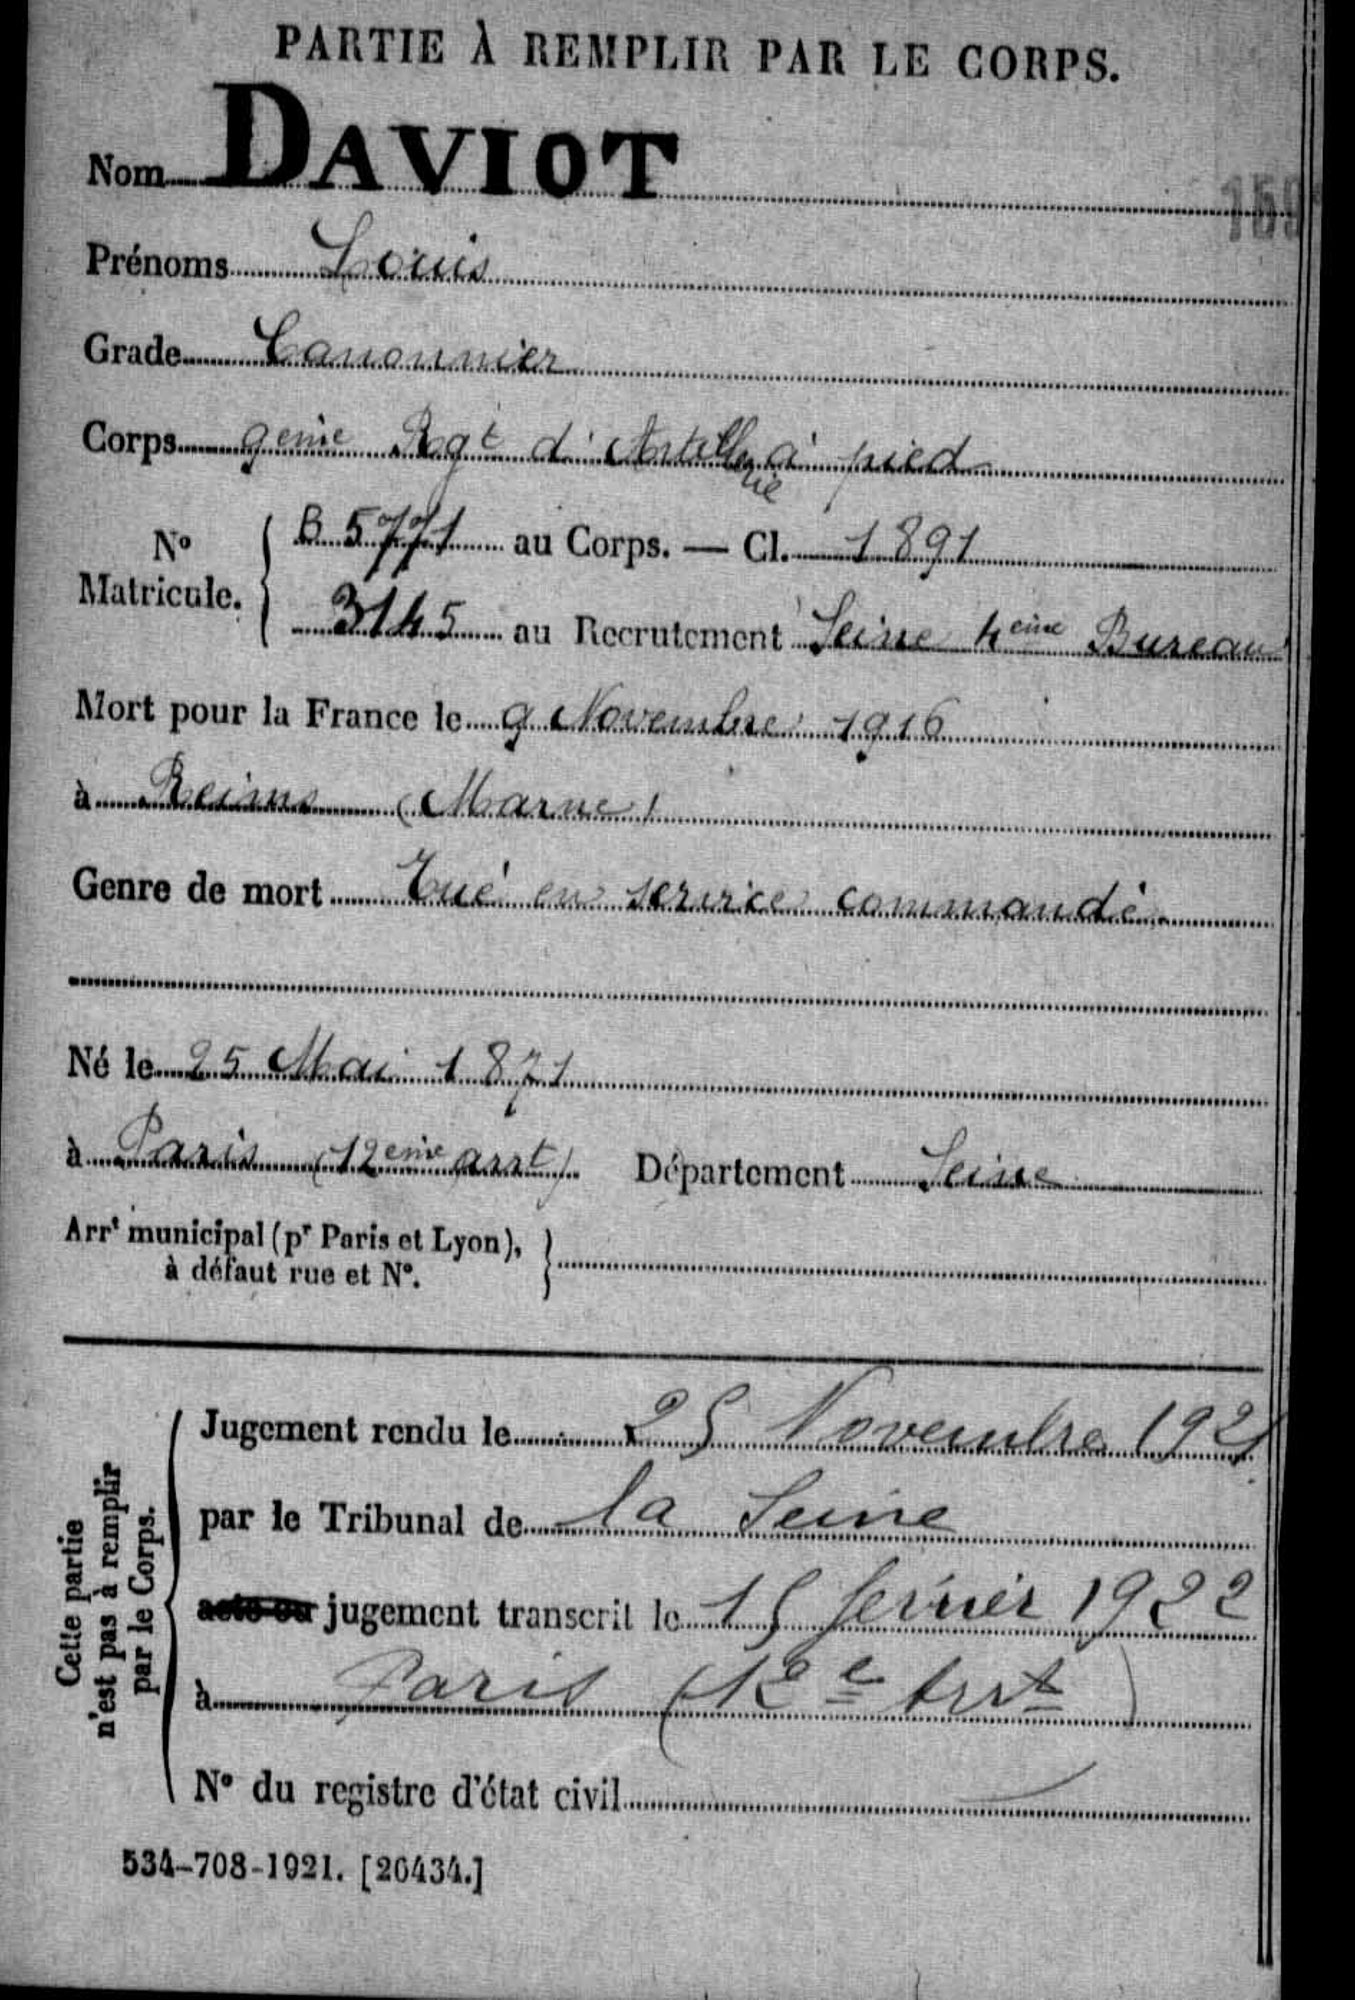 PARTIE À REMPLIR PAR LE CORPS.
Nom DAVIOT
159
Prénoms Louis
Grade Canonnier
Corps 9eme Rgt d'Artillerie à pied
N° Matricule. B 5771 au Corps. — Cl. 1891
3145 au Recrutement Seine 4eme Bureau
Mort pour la France le 9 Novembre 1916
à Reims (Marne)
Genre de mort Tué en service commandé.
Né le 25 Mai 1871
à Paris (12eme arrt) Département Seine
Arrt municipal (pr Paris et Lyon),
à défaut rue et N°.
Cette partie
n'est pas à remplir
par le Corps.
Jugement rendu le 25 Novembre 1921
par le Tribunal de la Seine
acte ou jugement transcrit le 15 février 1922
à Paris (12e Arrt)
N° du registre d'état civil
534-708-1921. [26434.]